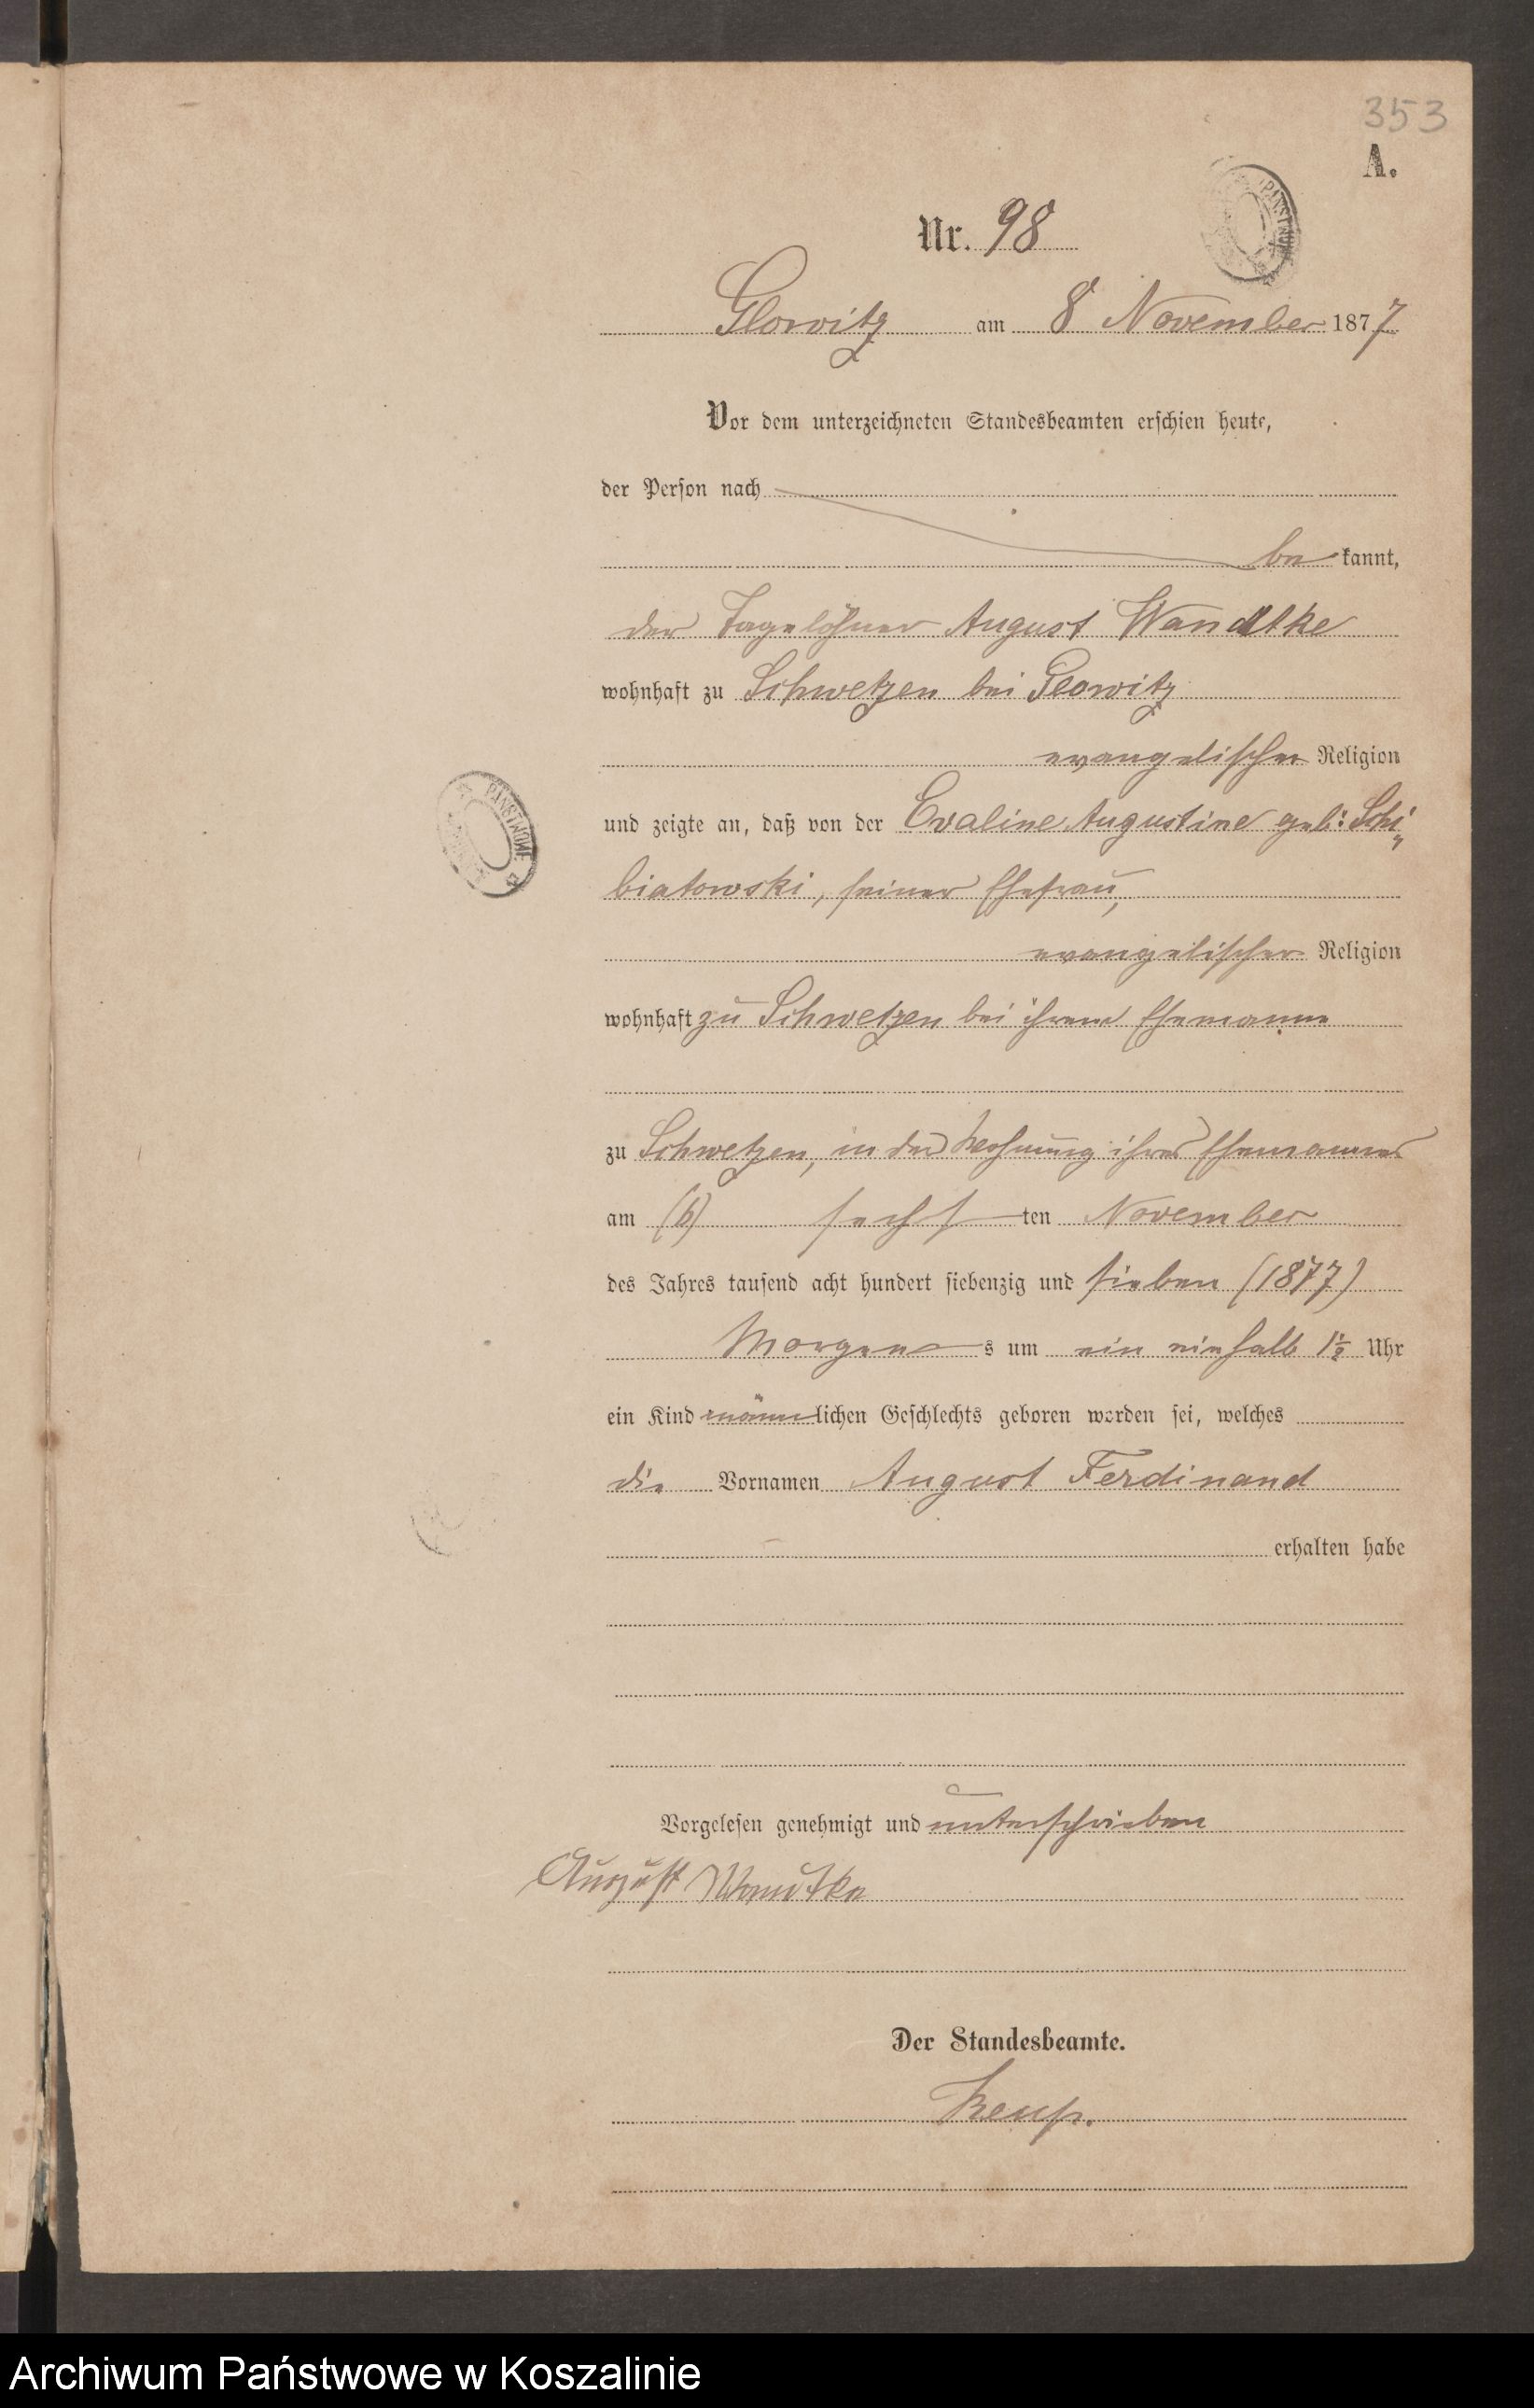 353
A.
Nr. 98
PAŃSTWOWE
Glowitz am 8 November 1877
Vor dem unterzeichneten Standesbeamten erschien heute,
der Person nach
be kannt,
der Tagelöhner August Wandtke
wohnhaft zu Schwetzen bei Glowitz
evangelischer Religion
und zeigte an, daß von der Evaline Augustine geb: Schi„
biatowski, seiner Ehefrau,
PAŃSTWOWE
evangelischer Religion
wohnhaft zu Schwetzen bei ihrem Ehemanne
zu Schwetzen, in der Wohnung ihres Ehemannes
am (6) sechs ten November
des Jahres tausend acht hundert siebenzig und sieben (1877)
Morgen s um ein einhalb 1½ Uhr
ein Kind männlichen Geschlechts geboren worden sei, welches
die Vornamen August Ferdinand
erhalten habe
Vorgelesen genehmigt und unterschrieben
August Wandtke
Der Standesbeamte.
Archiwum Państwowe w Koszalinie